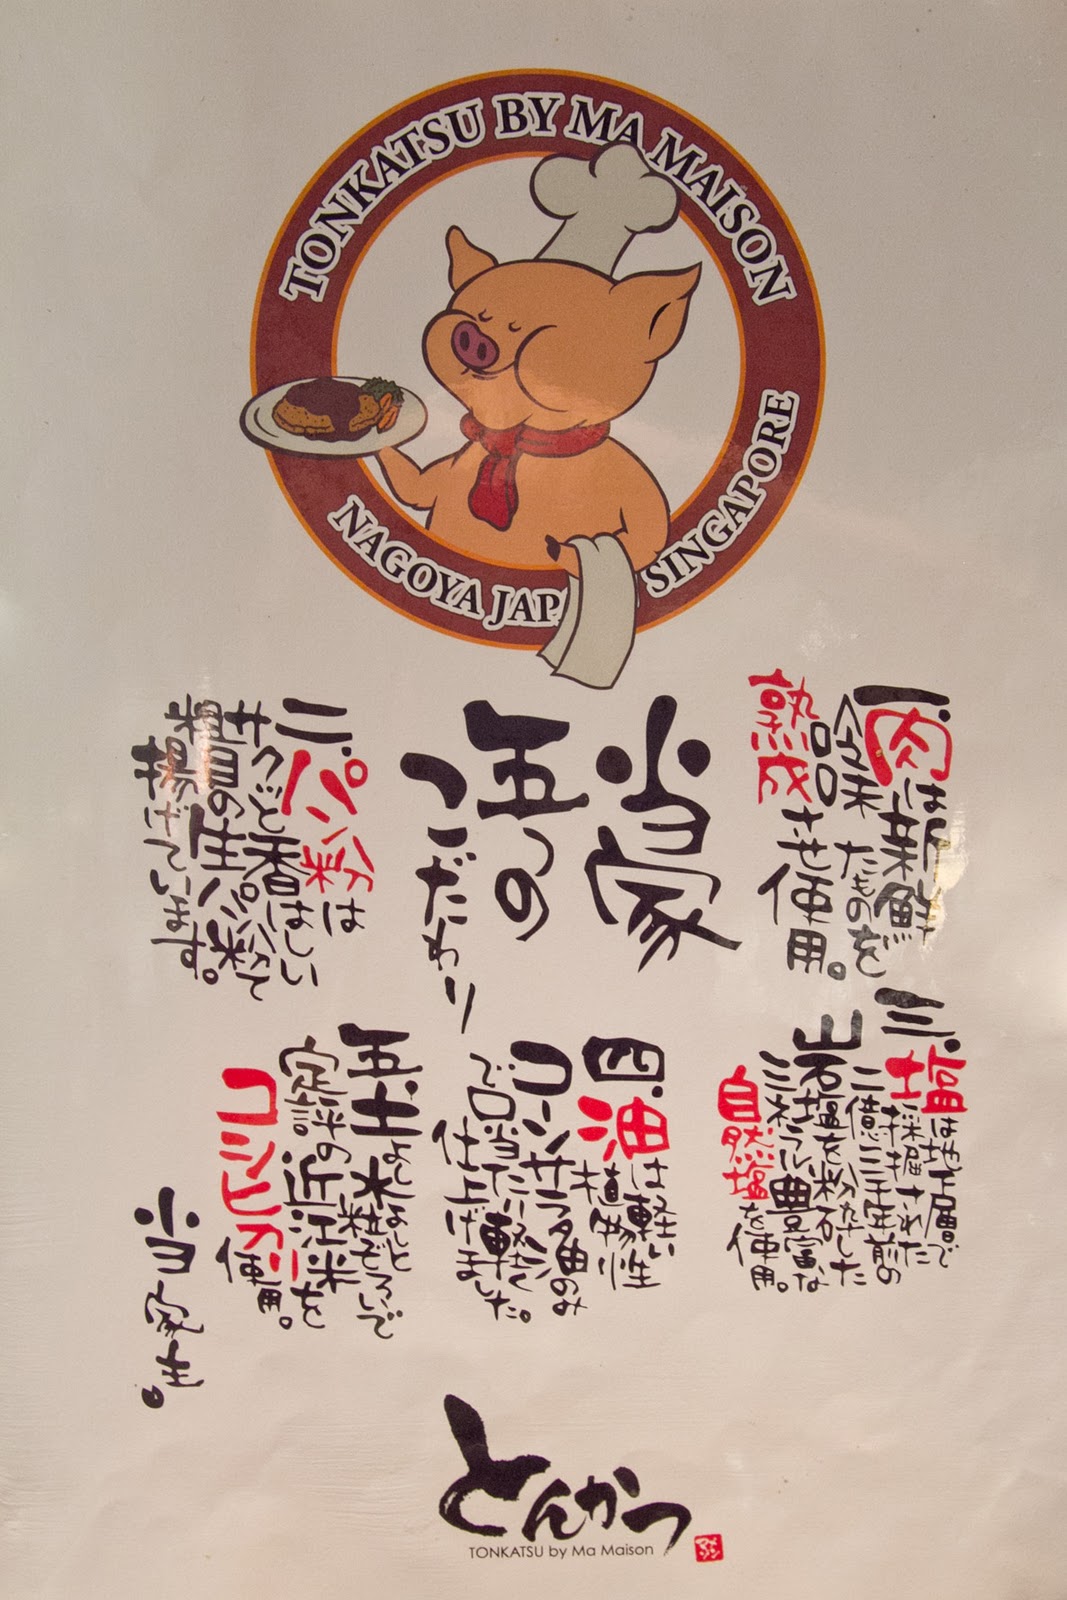 TONKATSU BY MA MAISON
NAGOYA JAPA SINGAPORE
当家
五つの
こだわり
一.肉は
新鮮
たものを
熟成させ使用。
二.パン粉は
サクッと香ばしい
粗目の生パン粉で
揚げています。
三.塩は地下層で
採掘された
二億三千年前の
岩塩を粉砕した
ミネラル豊富な
自然塩を使用。
四.油は軽い
植物性
コーンサラダ油のみ
で口当たり軽く
仕上げました。
五.土よし水よしと
粒ぞろいで
定評の近江米を
コシヒカリ使用。
当家主。
とんかつ
TONKATSU by Ma Maison